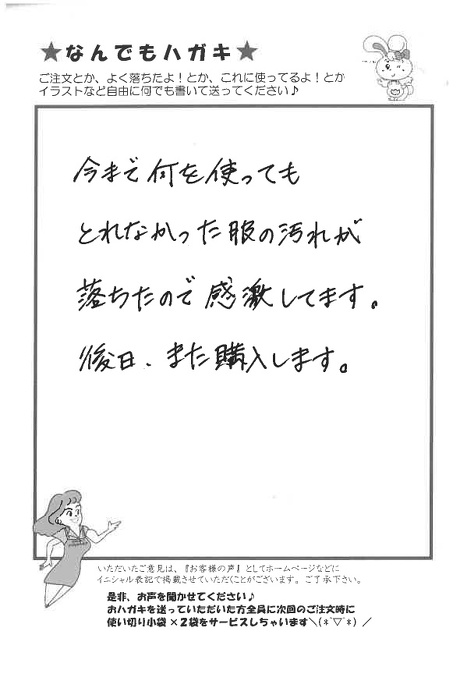 ★なんでもハガキ★
ご注文とか、よく落ちたよ！とか、これに使ってるよ！とか
イラストなど自由に何でも書いて送ってください♪
今まで何を使っても
とれなかった服の汚れが
落ちたので感激してます。
後日、また購入します。
いただいたご意見は、『お客様の声』としてホームページなどに
イニシャル表記で掲載させていただくことがございます。ご了承下さい。
是非、お声を聞かせてください♪
おハガキを送っていただいた方全員に次回のご注文時に
使い切り小袋×2袋をサービスしちゃいます＼(*ˊ▽ˋ*)／